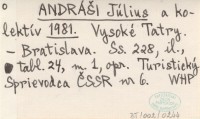 ANDRÁŠI Július a ko-
lektív 1981. Vysoké Tatry.
- Bratislava. Ss. 228, il.,
tabl. 24, m. 1, opr. Turistický
Sprievodca ČSSR nr 6. WHP